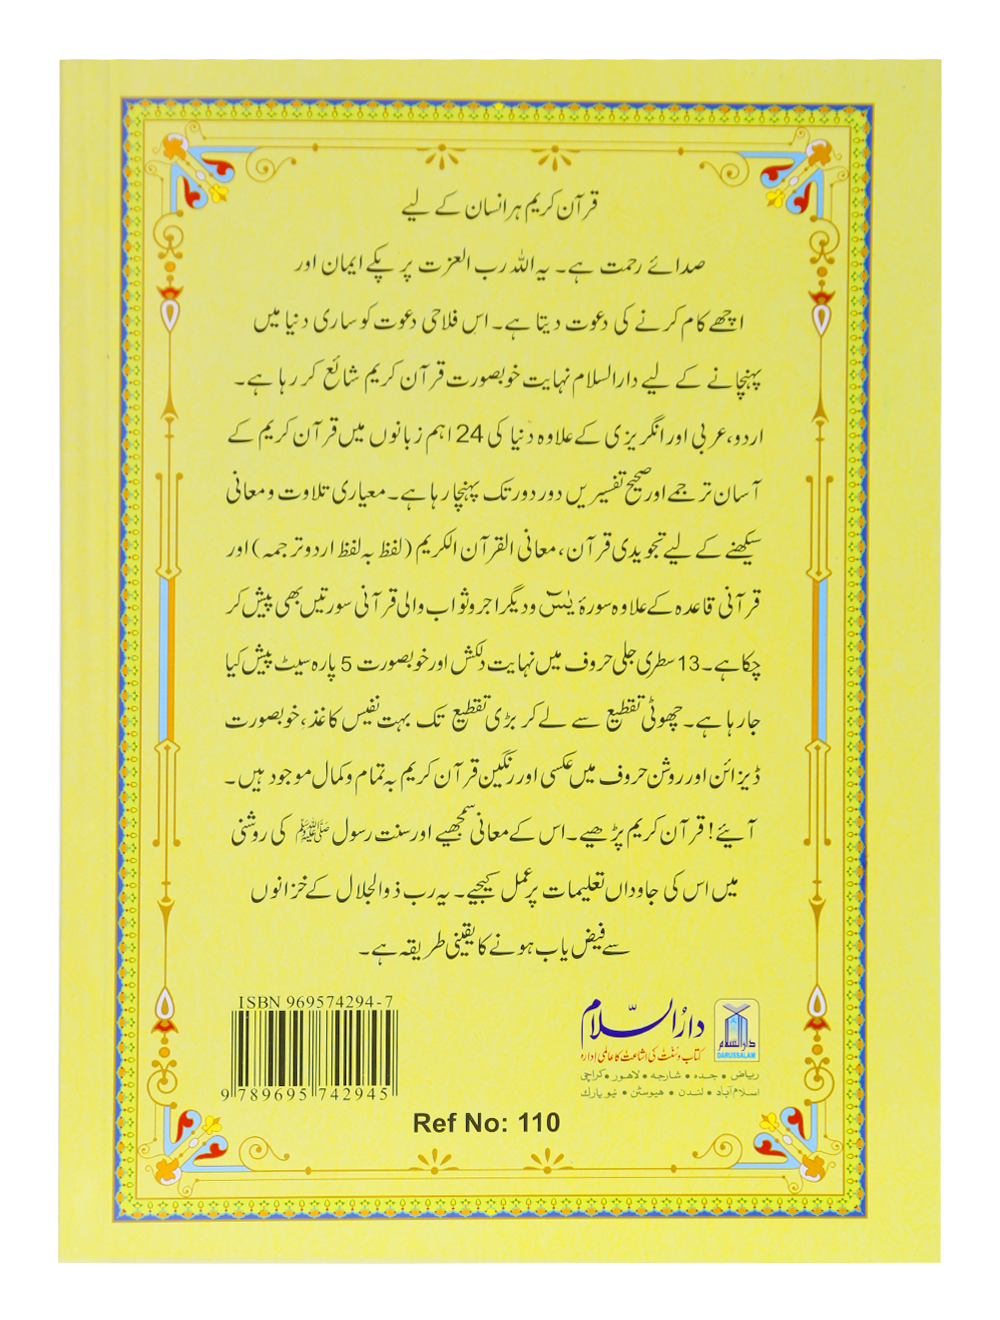 قرآن کریم ہر انسان کے لیے
صدائے رحمت ہے۔ یہ اللہ رب العزت پر پکے ایمان اور
اچھے کام کرنے کی دعوت دیتا ہے۔ اس فلاحی دعوت کو ساری دنیا میں
پہنچانے کے لیے دارالسلام نہایت خوبصورت قرآن کریم شائع کر رہا ہے۔
اردو، عربی اور انگریزی کے علاوہ دنیا کی 24 اہم زبانوں میں قرآن کریم کے
آسان ترجمے اور صحیح تفسیریں دور دور تک پہنچا رہا ہے۔ معیاری تلاوت و معانی
سیکھنے کے لیے تجویدی قرآن، معانی القرآن الکریم (لفظ بہ لفظ اردو ترجمہ) اور
قرآنی قاعدہ کے علاوہ سورۂ یٰسٓ و دیگر اجر و ثواب والی قرآنی سورتیں بھی پیش کر
چکا ہے۔ 13 سطری جلی حروف میں نہایت دلکش اور خوبصورت 5 پارہ سیٹ پیش کیا
جا رہا ہے۔ چھوٹی تقطیع سے لے کر بڑی تقطیع تک بہت نفیس کاغذ، خوبصورت
ڈیزائن اور روشن حروف میں عکسی اور رنگین قرآن کریم بہ تمام و کمال موجود ہیں۔
آیئے! قرآن کریم پڑھیے۔ اس کے معانی سمجھیے اور سنت رسول ﷺ کی روشنی
میں اس کی جاوداں تعلیمات پر عمل کیجیے۔ یہ رب ذوالجلال کے خزانوں
سے فیض یاب ہونے کا یقینی طریقہ ہے۔
ISBN 969574294-7
9 789695 742945
دارالسلام
کتاب و سنت کی اشاعت کا عالمی ادارہ
ریاض • جدہ • شارجہ • لاہور • کراچی
اسلام آباد • لندن • ھیوسٹن • نیو یارک
دارالسلام
DARUSSALAM
Ref No: 110